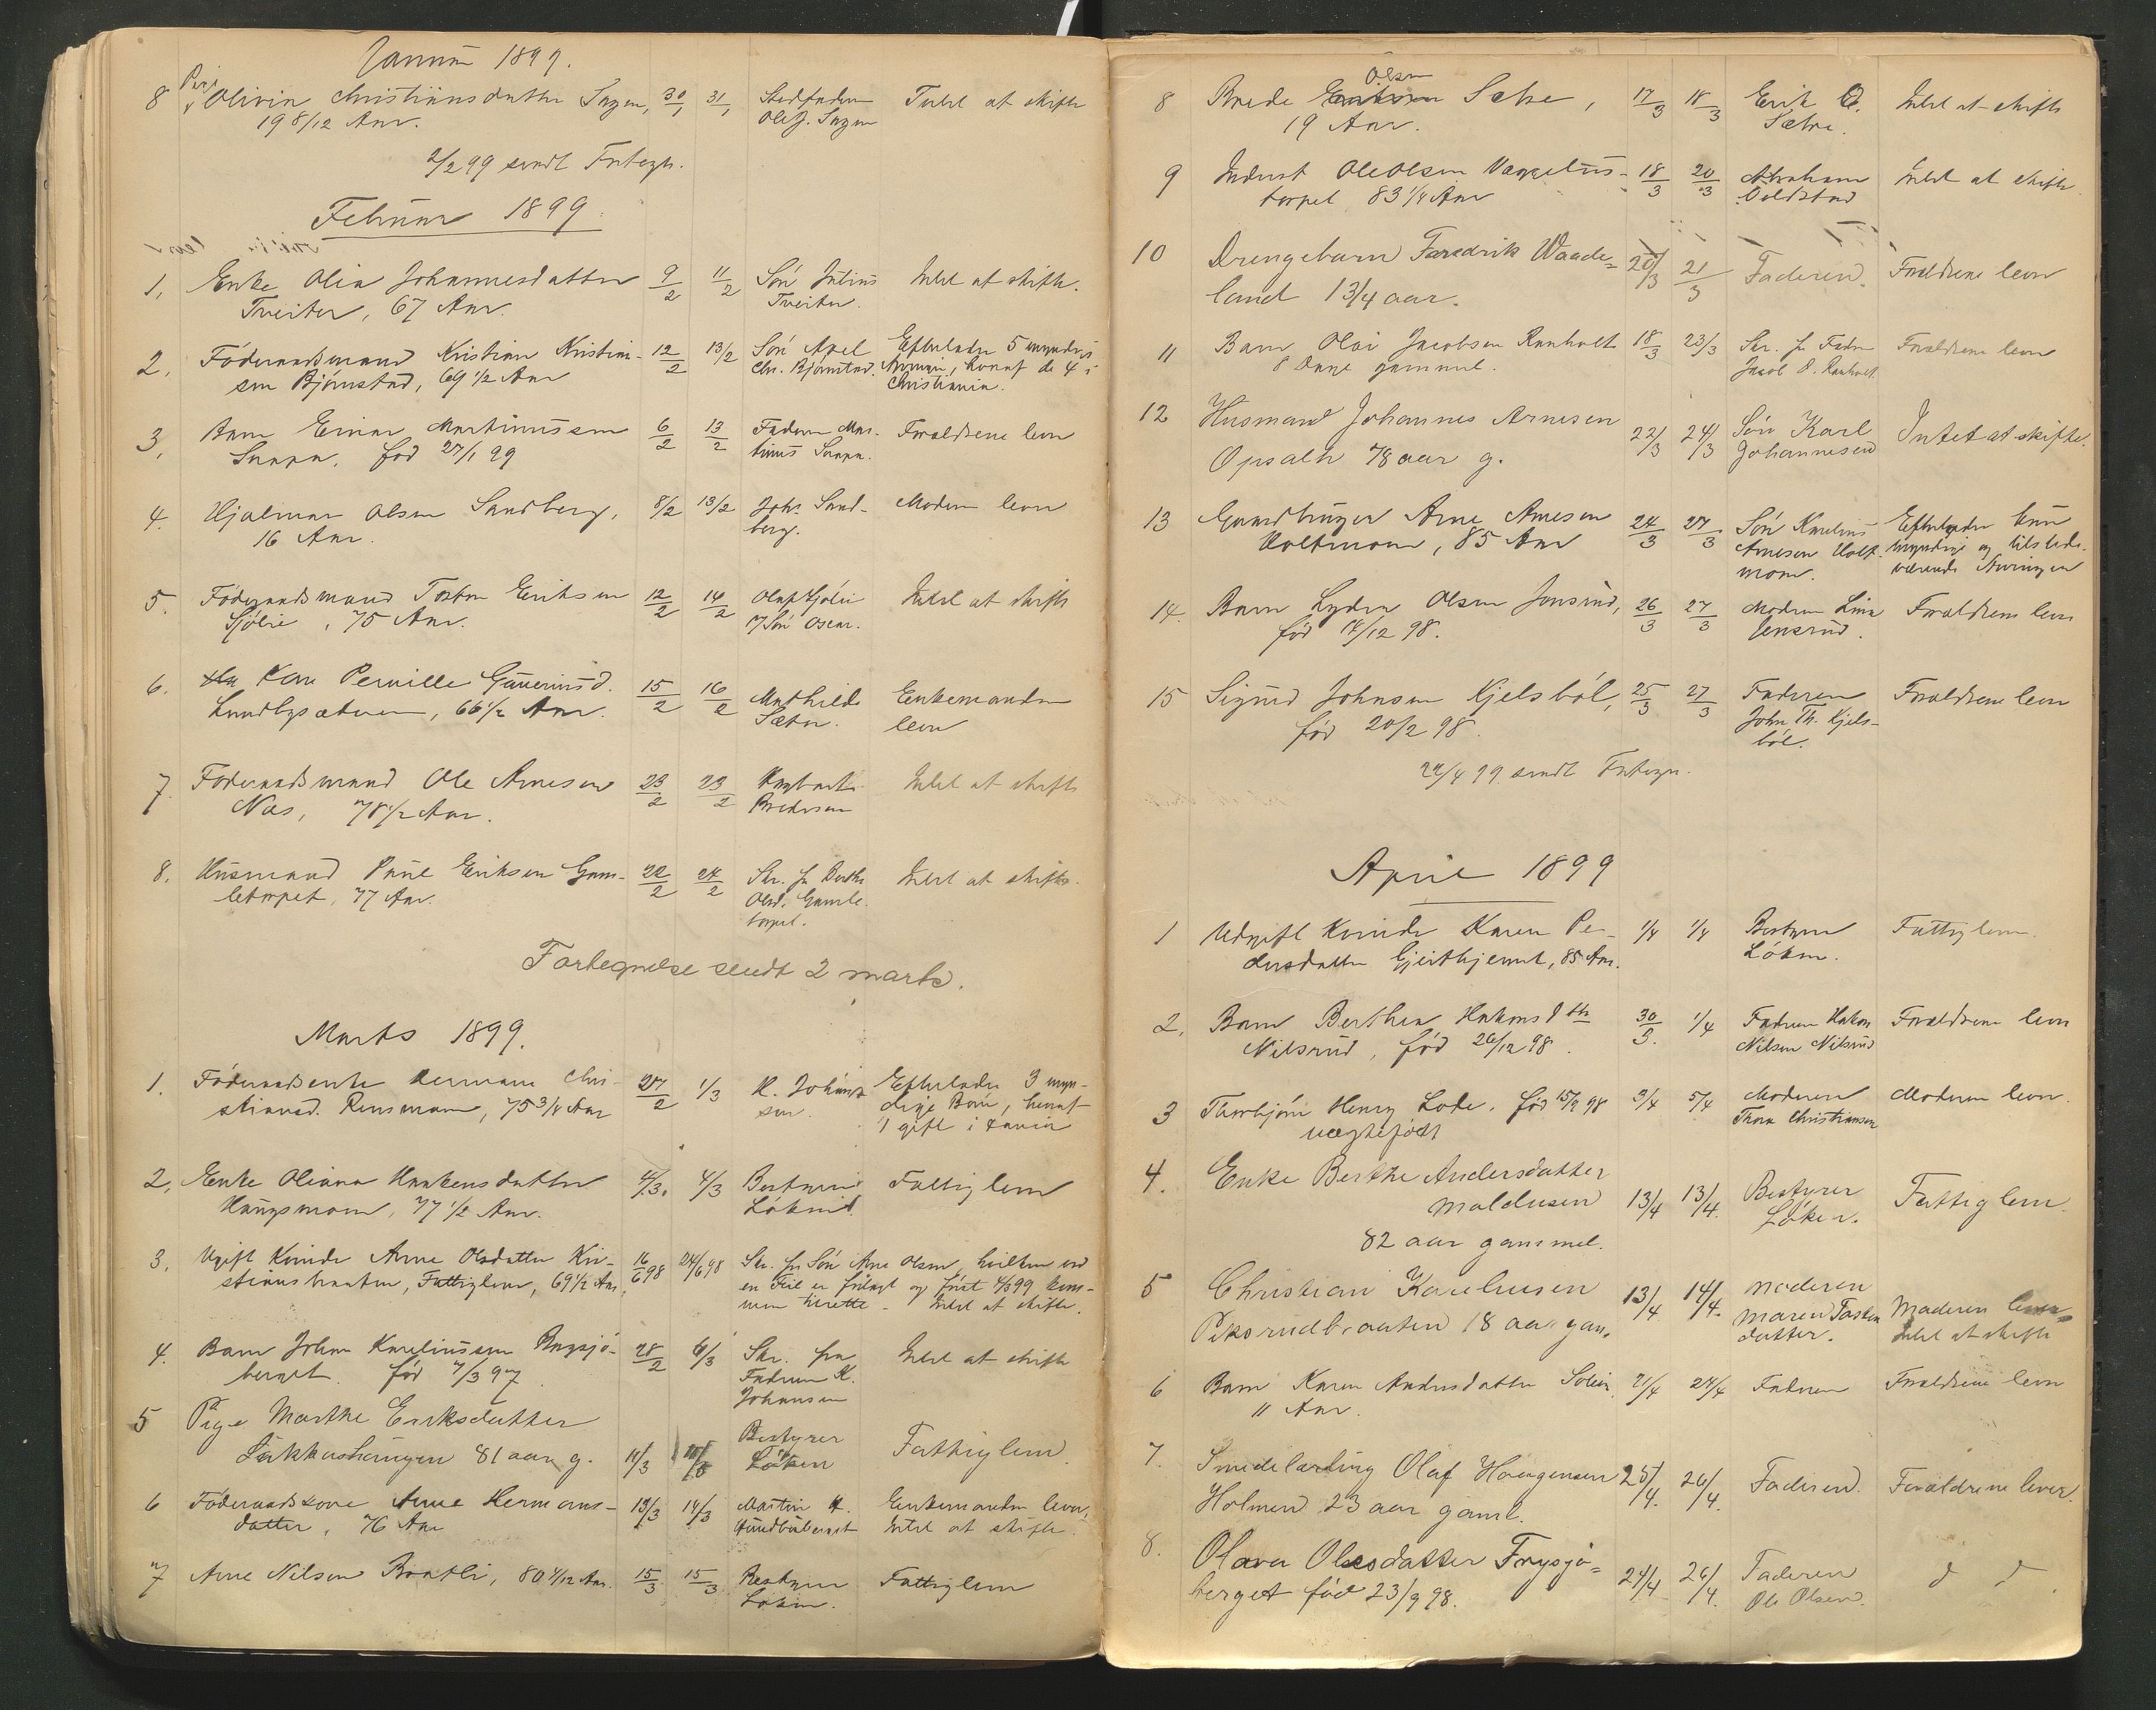 Januar 1899.
8 Pige Olivia Christiansdatter Sagen, 30/1 31/1 Stedfaderen Intet at skifte
19 8/12 Aar. Ole J. Sagen
2/2 99 sendt Fortegn.
Februar 1899.
1, Enke Olia Johannesdatter 9/2 11/2 Søn Julius Intet at skifte.
Tveiter, 67 Aar. Tveiter.
2, Föderaadsmand Kristian Kristian- 12/2 13/2 Søn Axel Efterlader 5 myndige
sen Bjørnstad, 69 1/2 Aar Chr. Bjørnstad. Arvinger, hvoraf de 4 i
Christiania.
3, Barn Einar Martinussen 6/2 13/2 Faderen Mar- Forældrene lever
født 27/1 99 tinus
4. Hjalmar Olsen Sandberg, 8/2 13/2 Johs. Sand- Moderen lever
16 Aar. berg.
5. Föderaadsmand Torsten Eriksen 12/2 14/2 Olaf Sjølie Intet at skifte
Sjølie, 75 Aar. Søn Oscar.
6. Kone Pernille Guneriusd. 15/2 16/2 Mathilde Enkemanden
Lundbysæteren, 66 1/2 Aar. Sæter. lever
7. Föderaadsmand Ole Arnesen 23/2 23/2 Intet at skifte
Næs, 78 1/2 Aar. Bredesen
8. Husmand Paul Eriksen Gam- 22/2 24/2 Skr. fr Berthe Intet at skifte.
letorpet, 77 Aar. Olsd. Gamle-
torpet.
Fortegnelse sendt 2 marts.
Marts 1899.
1. Föderaadsenke Hermane Chri- 27/2 1/3 K. Johan- Efterlader 3 myn-
stiansd. Rensmoen, 75 3/4 Aar sen. dige Börn, hvoraf
1 gift i
2, Enke Oliana Haakensdatter 4/3. 4/3 Bestyrer Fattiglem
Haugsmoen, 77 1/2 Aar. Løken
3, Ugift Kvinde Anne Olsdatter Kri- 16/6 98 24/6 98 Skr. fr Søn Arne Olsen, hvilken ved
stiansbraaten, Fattiglem, 69 1/2 Aar, en Feil er forlagt og først 4/3 99 kom-
men tilrette. - Intet at skifte.
4. Barn Johan Kareliussen Frysjö- 28/2 6/3 Skr. fra Intet at skifte
berget. født 7/3 97 Faderen K.
Johansen
5 Pige Marthe Eriksdatter Bestyrer
81 aar g. 11/3 Løken Fattiglem.
6 Föderaadskone Anne Hermans- 13/3 14/3 Martin H. Enkemanden lever,
datter, 76 Aar Intet at skifte.
7 Arne Nilsen Braatli, 80 4/12 Aar. 15/3 15/3 Bestyrer Fattiglem
Løken.
8 Brede Olsen Sætre, 17/3 18/3 Erik O. Intet at skifte
19 Aar. Sætre.
9 Inderst Ole Olsen 18/3 20/3 Abraham Intet at skifte.
torpet 83 1/4 Aar Oldstad
10 Drengebarn Fredrik Waade= 20/3 21/3 Faderen. Forældrene lever
land 1 3/4 aar.
11 Barn Olai Jacobsen Ranholt 18/3 23/3 Skr. fr Fader Forældrene lever
8 Dage gammel. Jacob O. Ranholt.
12 Husmand Johannes Arnesen 22/3 24/3 Søn Karl Intet at skifte.
Opsalh 78 aar g. Johannesen
13 Gaardbruger Arne Arnesen 24/3 27/3 Søn Karelius Efterlader kun
Holtmoen, 85 Aar Arnesen Holt- myndige og tilstede-
moen. værende Arvinger
14. Barn Lydia Olsen Jensrud, 26/3 27/3 Moderen Lina Forældrene lever
født 14/12 98. Jensrud.
15 Sigurd Johnsen Kjelsböl, 25/3 27/3 Faderen Forældrene lever
født 20/2 98. John Th. Kjels-
böl.
24/4 99. sendt Fortegn.
April 1899
1 Ugift Kvinde Karen Pe- 1/4 1/4 Bestyrer Fattiglem.
dersdatter Gjeithjernet, 85 Aar. Løken.
2, Barn Berthea Hakonsdtr 30/3. 1/4 Faderen Hakon Forældrene lever
Nilsrud, født 26/12 98. Nilsen Nilsrud
3 Thorbjörn Henry Lode. født 15/9 98 3/4 5/4 Moderen Moderen lever.
uægtefødt Thora Christiansen
4. Enke Berthe Andersdatter
Moldusen 13/4 13/4. Bestyrer Fattiglem.
82 aar gammel. Løken.
5 Christian Kareliusen 13/4 14/4. Moderen
Piksrudbraaten 18 aar gam. Maren Tosten Moderen lever
datter. Intet at skifte
6 Barn Karen Andersdatter Solein, 21/4 24/4 Faderen Forældrene lever
11 Aar.
7. Smedelærling Olaf Haagensen 25/4. 26/4. Faderen. Forældrene lever.
Holmen 23 aar gaml.
8. Olava Olsdatter Frysjö= 24/4 26/4. Faderen d d.
berget født 23/9 98. Ole Olsen.